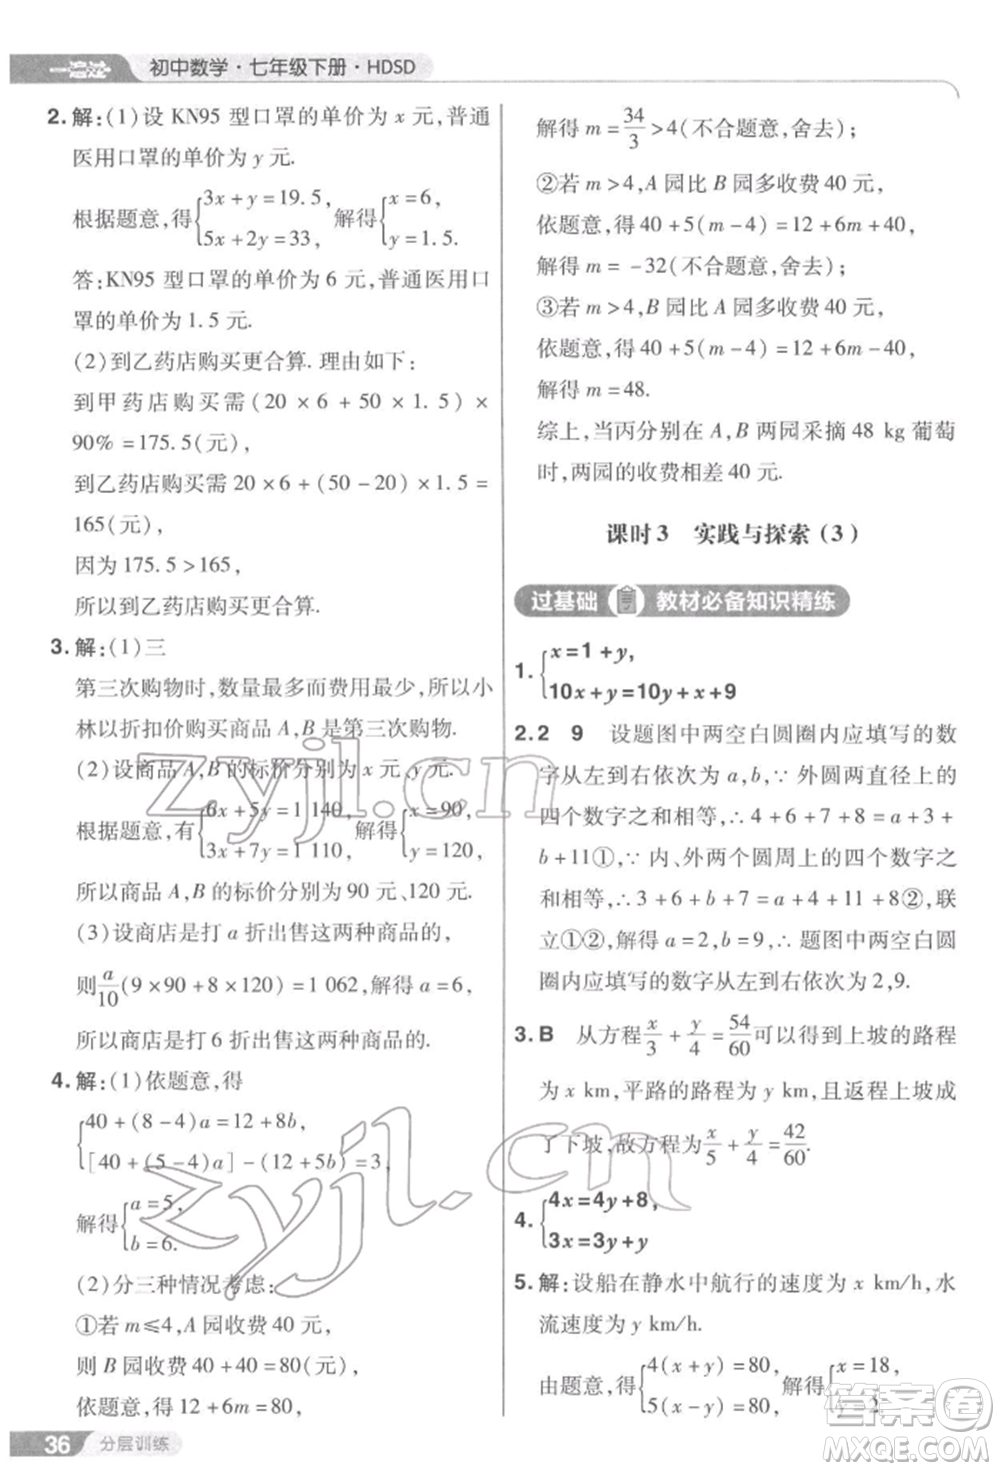 一遍过 初中数学·七年级下册·HDSD
2.解:(1)设 KN95 型口罩的单价为 x 元,普通
医用口罩的单价为 y 元.
根据题意,得{3x+y=19.5, 5x+2y=33, 解得{x=6, y=1.5.
答:KN95 型口罩的单价为 6 元,普通医用口
罩的单价为 1.5 元.
(2)到乙药店购买更合算. 理由如下:
到甲药店购买需(20×6+50×1.5)×
90%=175.5(元),
到乙药店购买需 20×6+(50-20)×1.5=
165(元),
因为 175.5>165,
所以到乙药店购买更合算.
3.解:(1)三
第三次购物时,数量最多而费用最少,所以小
林以折扣价购买商品 A,B 是第三次购物.
(2)设商品 A,B 的标价分别为 x 元、y 元.
根据题意,有{6x+5y=1 140, 3x+7y=1 110, 解得{x=90, y=120,
所以商品 A,B 的标价分别为 90 元、120 元.
(3)设商店是打 a 折出售这两种商品的,
则a/10(9×90+8×120)=1 062,解得 a=6,
所以商店是打 6 折出售这两种商品的.
4.解:(1)依题意,得
{40+(8-4)a=12+8b,
[40+(5-4)a]-(12+5b)=3,
解得{a=5, b=6.
(2)分三种情况考虑:
①若 m≤4,A 园收费 40 元,
则 B 园收费 40+40=80(元),
依题意,得 12+6m=80,
36 分层训练
解得 m=34/3>4(不合题意,舍去);
②若 m>4,A 园比 B 园多收费 40 元,
依题意,得 40+5(m-4)=12+6m+40,
解得 m=-32(不合题意,舍去);
③若 m>4,B 园比 A 园多收费 40 元,
依题意,得 40+5(m-4)+40=12+6m,
解得 m=48.
综上,当丙分别在 A,B 两园采摘 48 kg 葡萄
时,两园的收费相差 40 元.
课时3 实践与探索(3)
过基础 教材必备知识精练
1.{x=1+y, 10x+y=10y+x+9
2.2 9 设题图中两空白圆圈内应填写的数
字从左到右依次为 a,b,∵ 外圆两直径上的
四个数字之和相等,∴4+6+7+8=a+3+
b+11①,∵ 内、外两个圆周上的四个数字之
和相等,∴3+6+b+7=a+4+11+8②,联
立①②,解得 a=2,b=9,∴ 题图中两空白圆
圈内应填写的数字从左到右依次为 2,9.
3.B 从方程x/3+y/4=54/60可以得到上坡的路程
为 x km,平路的路程为 y km,且返程上坡成
了下坡,故方程为x/5+y/4=42/60.
4.{4x=4y+8, 3x=3y+y
5.解:设船在静水中航行的速度为 x km/h,水
流速度为 y km/h.
由题意,得{4(x+y)=80, 5(x-y)=80, 解得{x=18, y=2.
zyjl.cn
zyjl.cn
答案圈
MXQE.COM